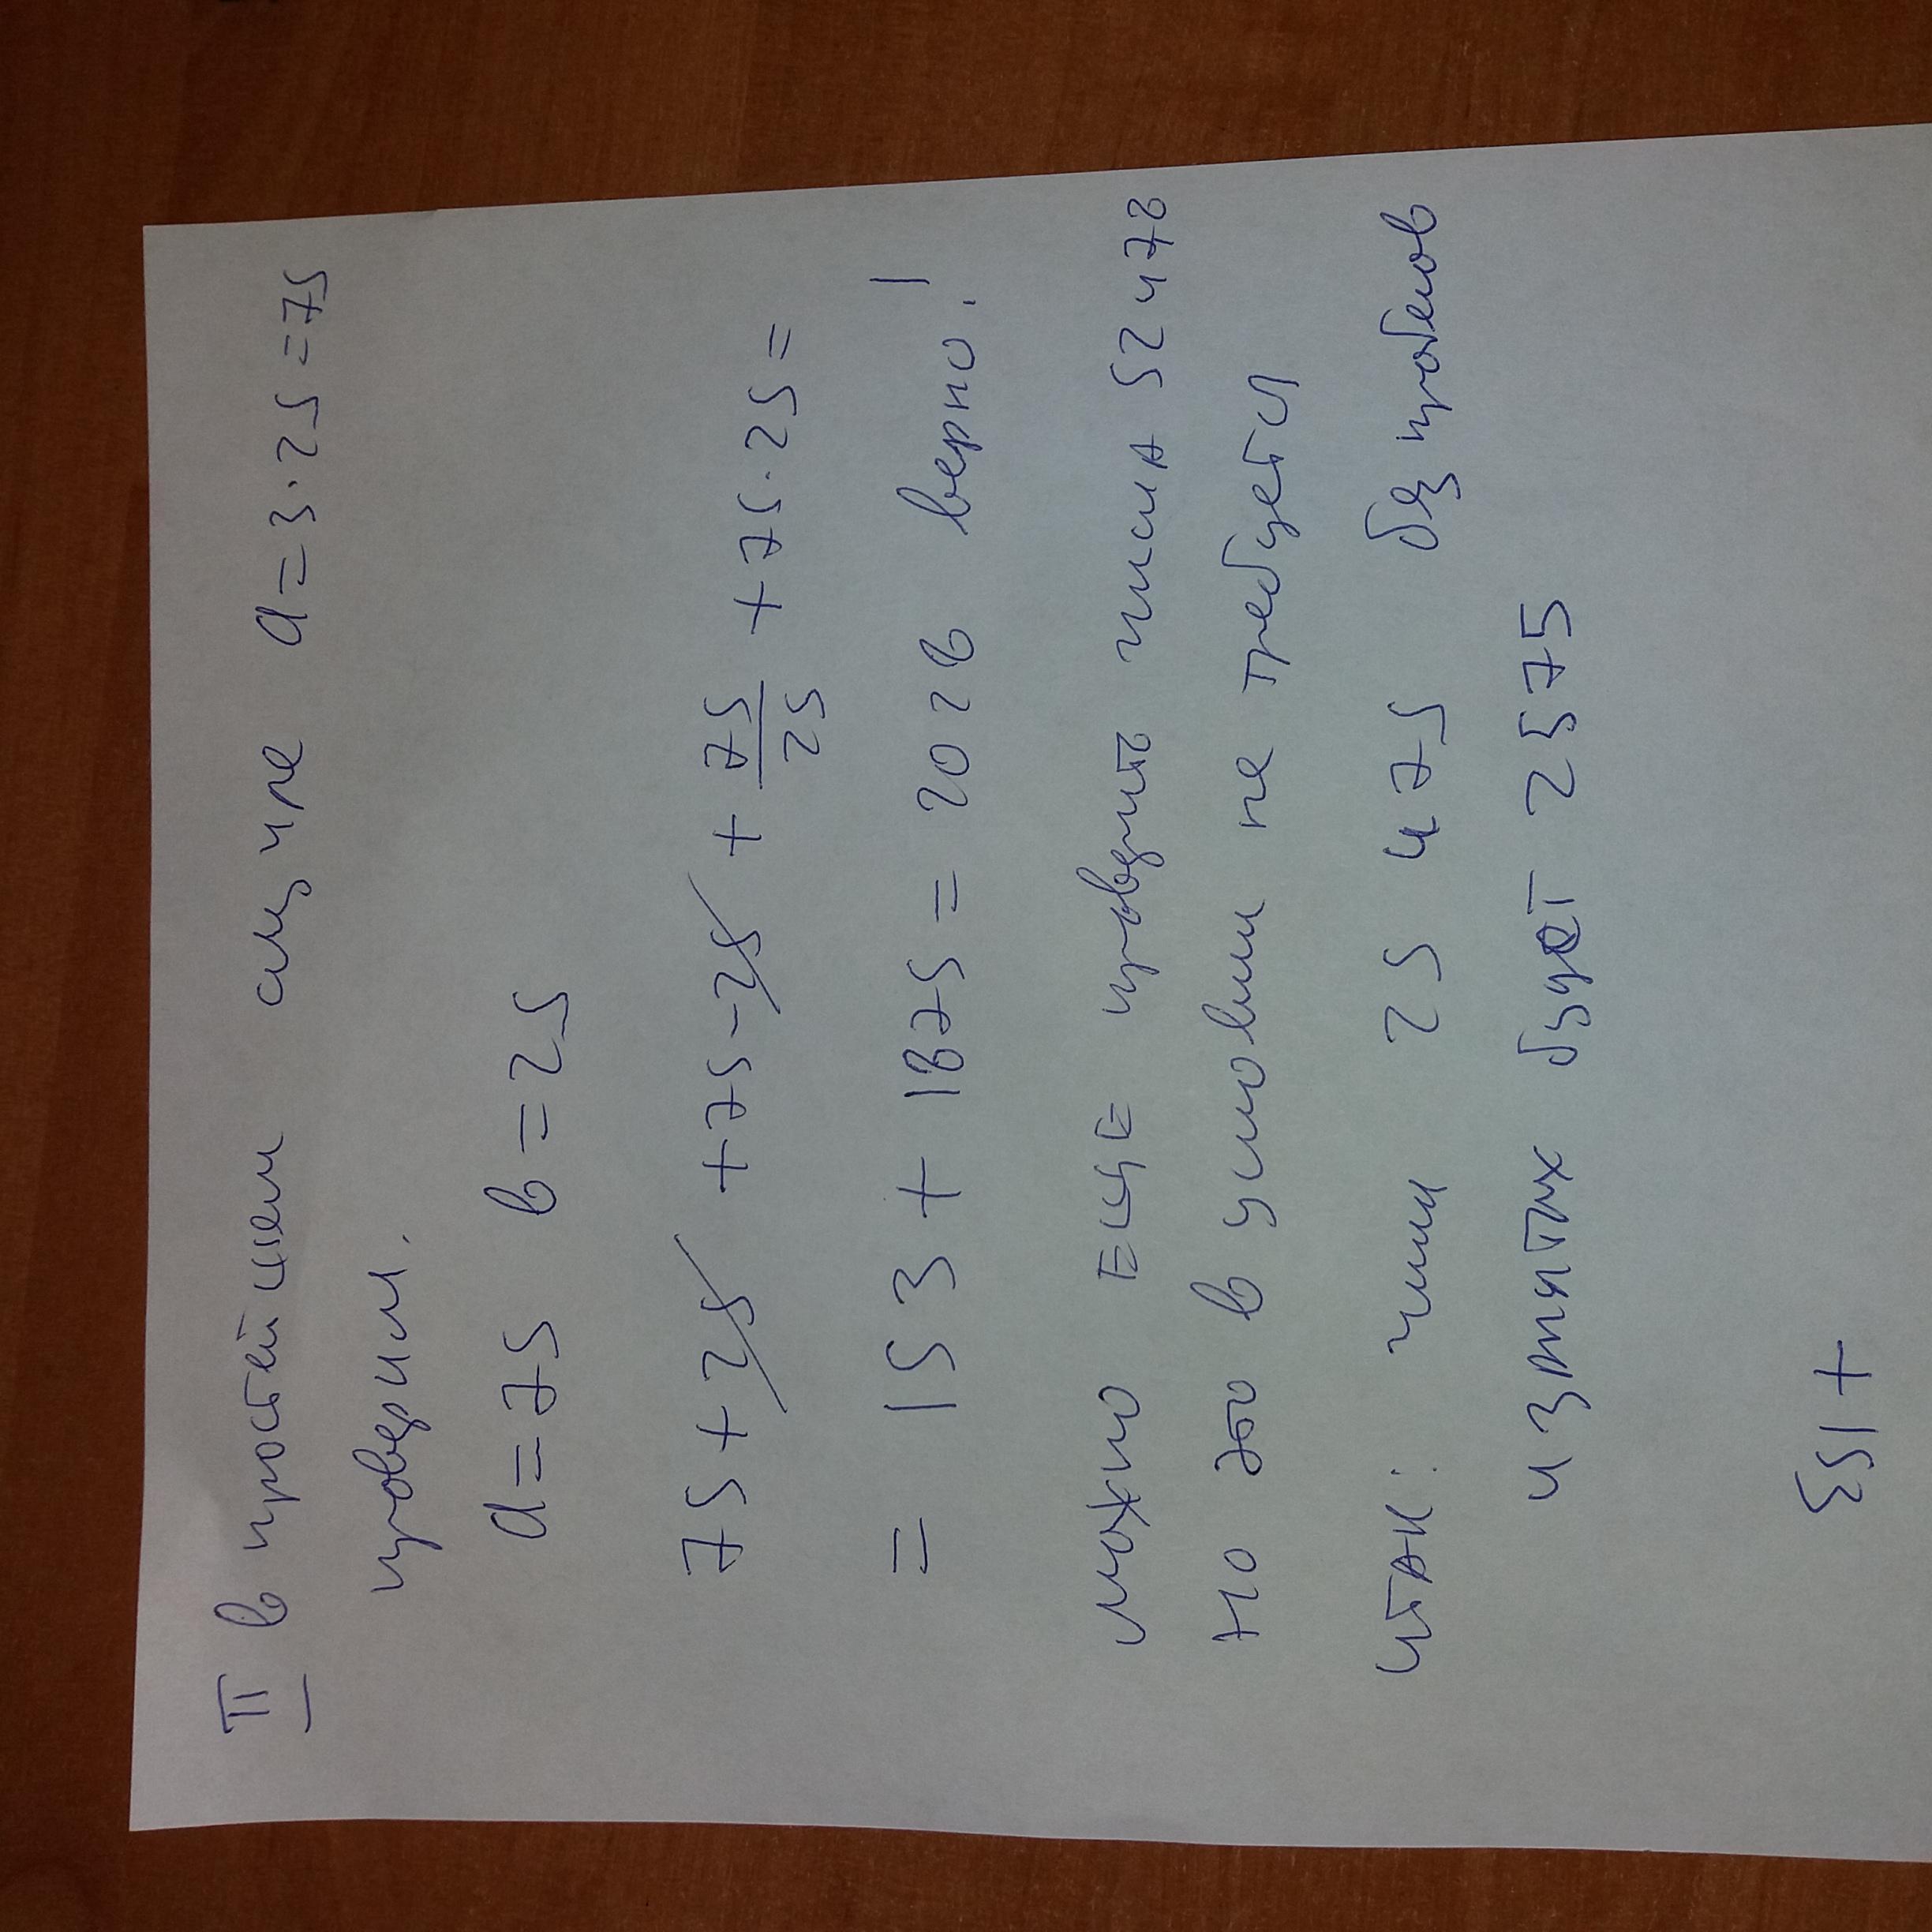 II в простейшем случае a = 3·25 = 75
проверим.
a = 75 в = 25
75 + 25 + 75 - 25 + 75/25 + 75·25 =
= 153 + 1875 = 2028 верно!
можно ЕЩЕ проверить числа 52 и 78
но это в условии не требуется
итак: числа 25 и 75 без пробелов
и запятых будет 2575
+